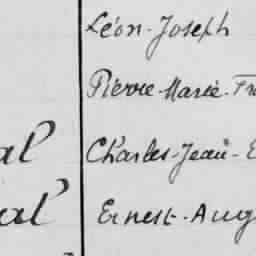 Léon-Joseph
Pierre-Marie-Fr
al Charles-Jean-E
al Ernest-Aug